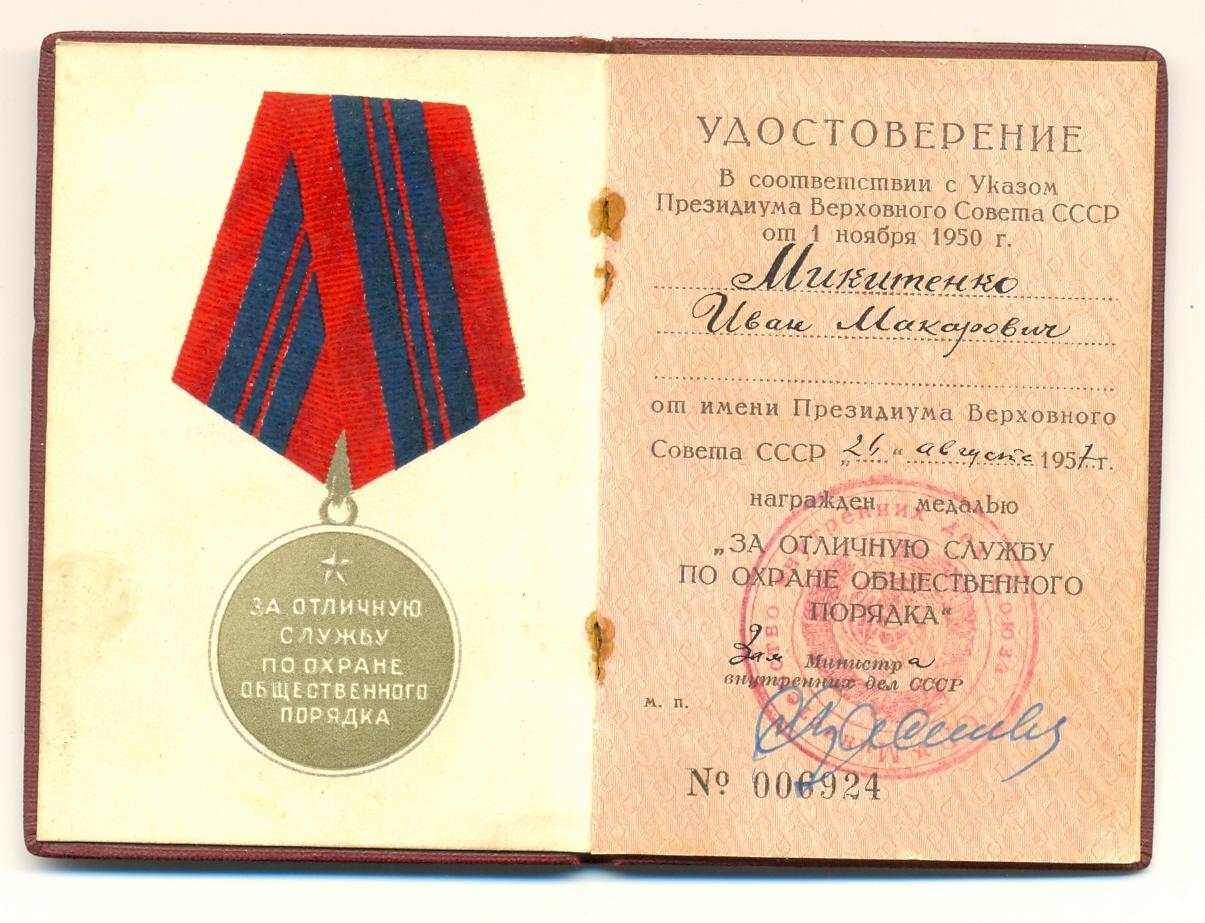 ЗА ОТЛИЧНУЮ
СЛУЖБУ
ПО ОХРАНЕ
ОБЩЕСТВЕННОГО
ПОРЯДКА
УДОСТОВЕРЕНИЕ
В соответствии с Указом
Президиума Верховного Совета СССР
от 1 ноября 1950 г.
Микитенко
Иван Макарович
от имени Президиума Верховного
Совета СССР „26“ августа 1957 г.
награжден медалью
„ЗА ОТЛИЧНУЮ СЛУЖБУ
ПО ОХРАНЕ ОБЩЕСТВЕННОГО
ПОРЯДКА“
Зам Министра
внутренних дел СССР
м. п.
№ 006924